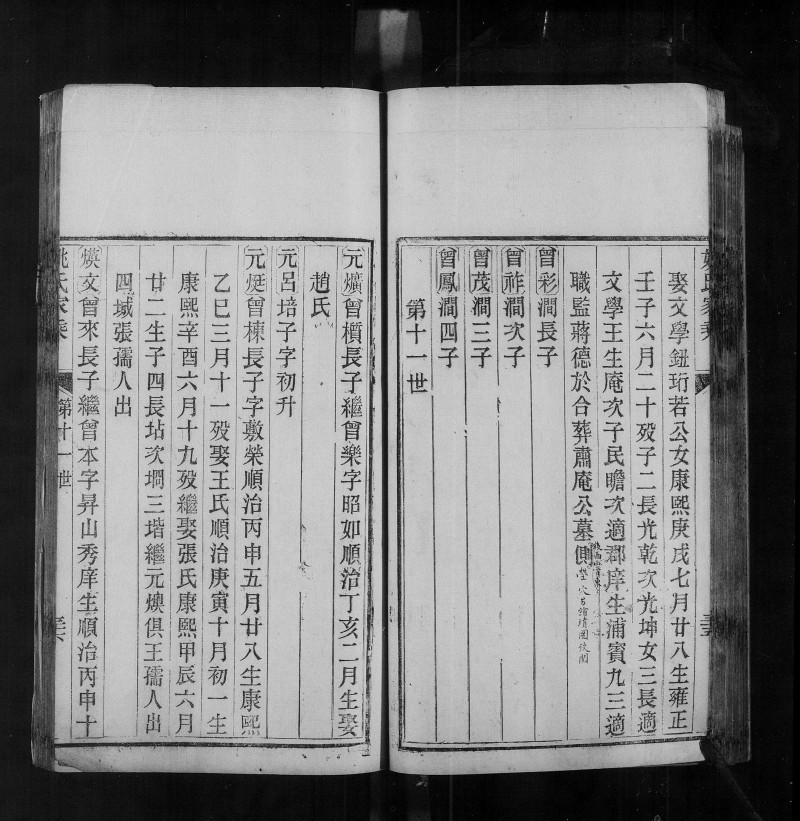 娶文學鈕珩若公女康熙庚戌七月廿八生雍正
壬子六月二十殁子二長光乾次光坤女三長適
文學王生庵次子民瞻次適郡庠生浦賓九三適
職監蔣德於合葬肅庵公墓側
曾彩澗長子
曾祚澗次子
曾茂澗三子
曾鳳澗四子
第十一世
元爌曾櫝長子繼曾樂字昭如順治丁亥二月生娶
趙氏
元呂培子字初升
元烶曾棟長子字敷榮順治丙申五月廿八生康熙
乙巳三月十一殁娶王氏順治庚寅十月初一生
康熙辛酉六月十九殁繼娶張氏康熙甲辰六月
廿二生子四長坫次墹三堦繼元燠俱王孺人出
四堿張孺人出
煐文曾來長子繼曾本字昇山秀庠生順治丙申十
姚氏家乘
第十一世